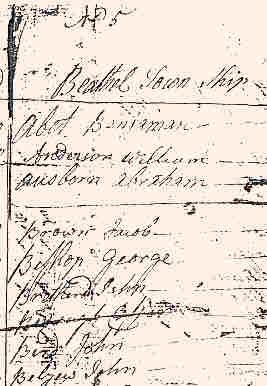 No 5
Beathel Town Ship
Abot Beniaman
Anderson William
ausborn abraham
Brown Jacob
Bishop George
John
Bird John
Belzew John